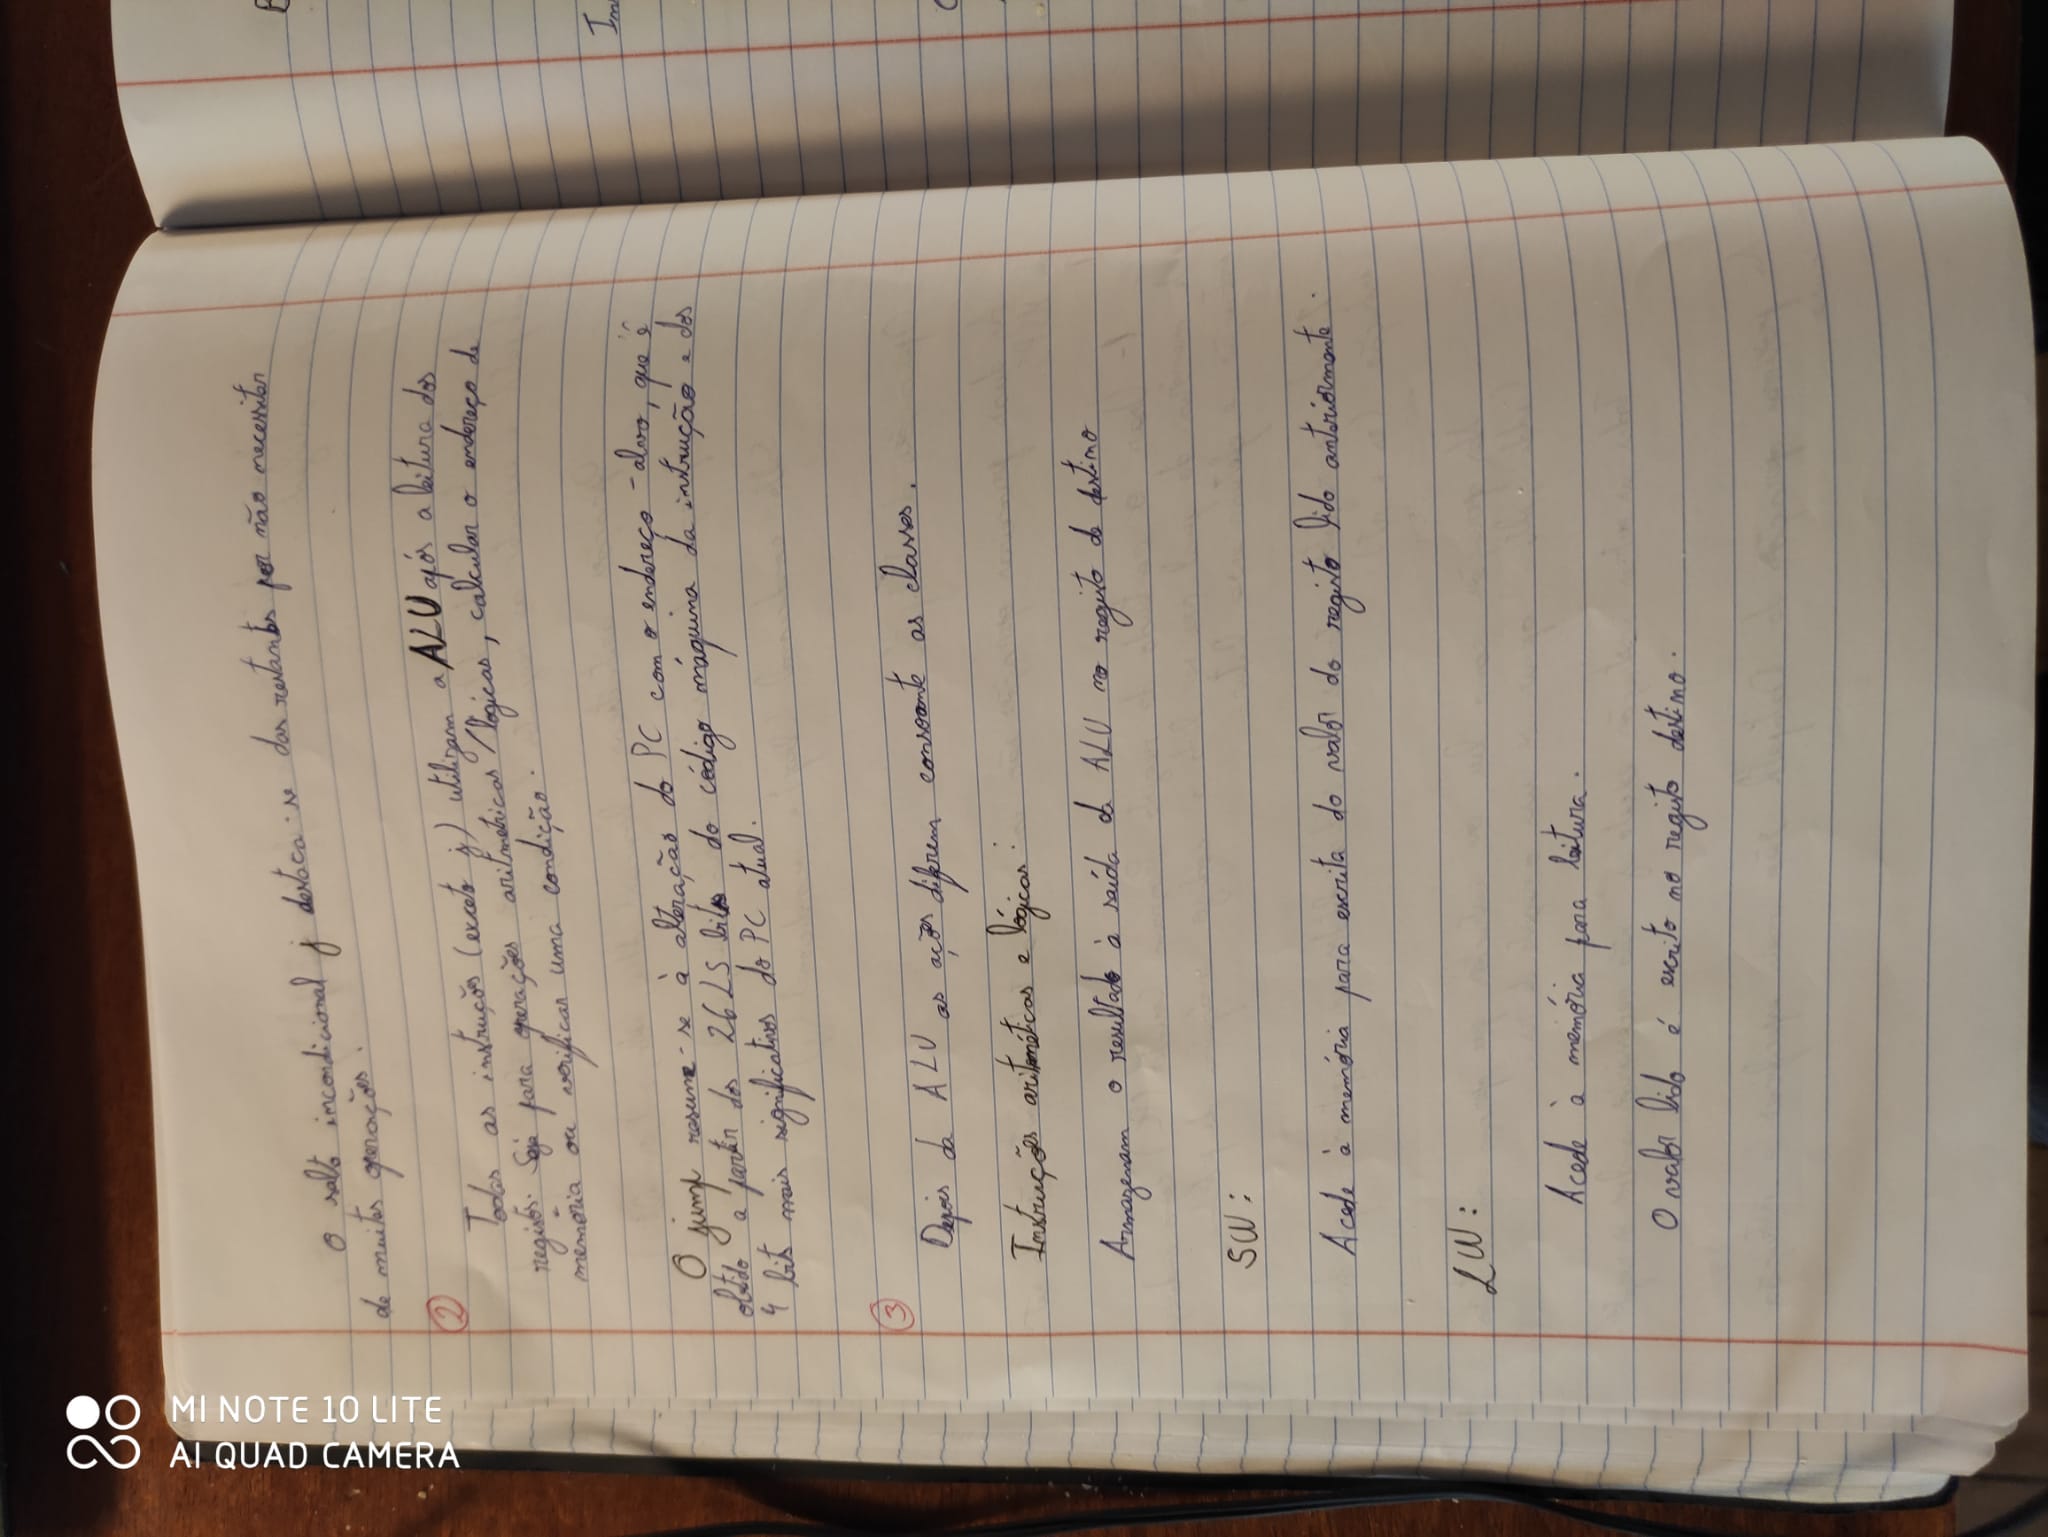 MI NOTE 10 LITE
AI QUAD CAMERA
O salto incondicional j destaca-se das restantes por não necessitar
de muitas operações.
2
Todas as instruções (exceto j) utilizam a ALU após a leitura dos
registos. Seja para operações aritmetricas/lógicas, calcular o endereço de
memória ou verificar uma condição.
O jump resume-se à alteração do PC com o endereço-alvo, que é
obtido a partir dos 26 LS bits do código máquina da instrução e dos
4 bits mais significativos do PC atual.
3
Depois da ALU as ações diferem consoante as classes.
Instruções aritméticas e lógicas:
Armazenam o resultado à saída da ALU no registo de destino
SW:
Acede à memória para escrita do valor do registo lido anteriormente.
LW:
Acede à memória para leitura.
O valor lido é escrito no registo destino.
Im